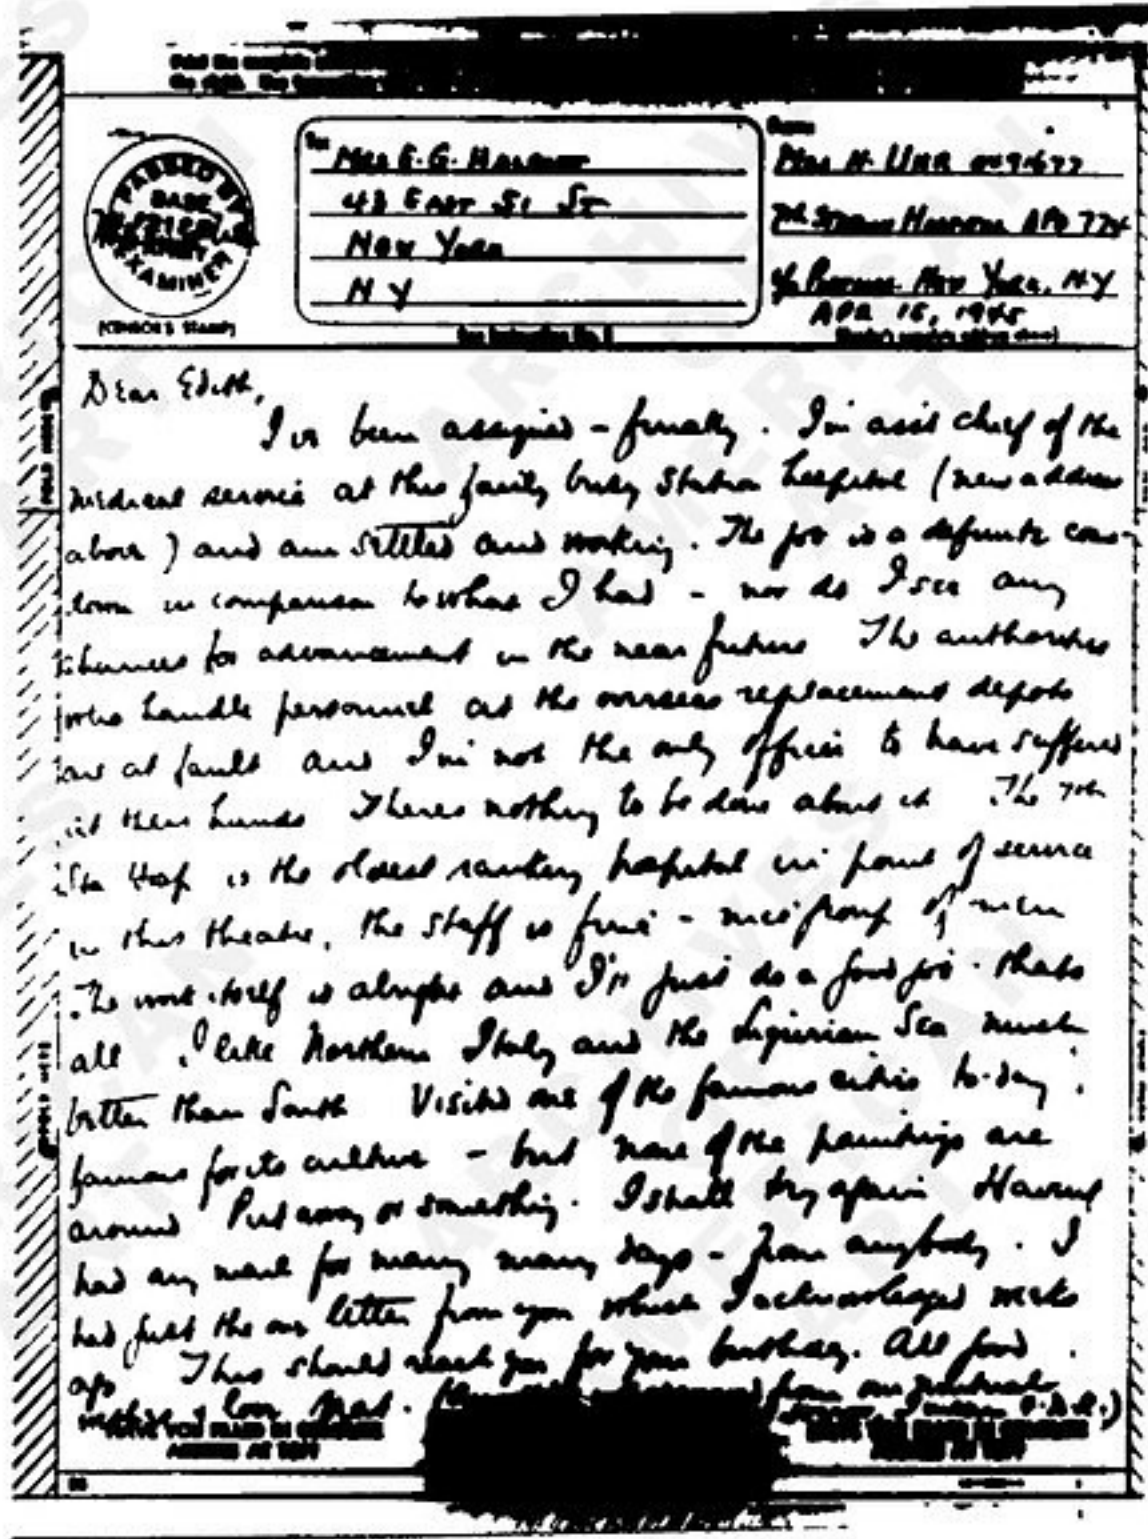 PASSED BY
BASE
EXAMINER
(CENSOR'S STAMP)
To
Mrs E. G. Halpert
43 East 51 St
New York
N Y
From
7th Station Hospital APO 774
c/o Postmaster New York, NY
APR 15, 1945
(Sender's complete address above)
See Instruction No. 2
Dear Edith,
I've been assigned – finally. I'm asst chief of the
medical service at this fairly busy Station hospital (new address
above) and am settled and working. The job is a definite come-
down in comparison to what I had – nor do I see any
chances for advancement in the near future The authorities
who handle personnel at the overseas replacement depots
are at fault and I'm not the only officer to have suffered
at their hands Theres nothing to be done about it The 7th
Sta Hosp is the oldest ranking hospital in point of service
in this theatre, the staff is fine – nice group of men
The work itself is alright and I'll just do a good job – thats
all I like Northern Italy and the Ligurian Sea much
better than South Visited one of the famous cities to-day,
famous for its culture – but none of the paintings are
around Put away or something. I shall try again Havent
had any mail for many many days – from anybody. I
had just the one letter from you which I acknowledged weeks
ago This should reach you for your birthday. All good
love Nat. from our mutual
HAVE YOU FILLED IN COMPLETE
ADDRESS AT TOP?
HAVE YOU FILLED IN COMPLETE
ADDRESS AT TOP?